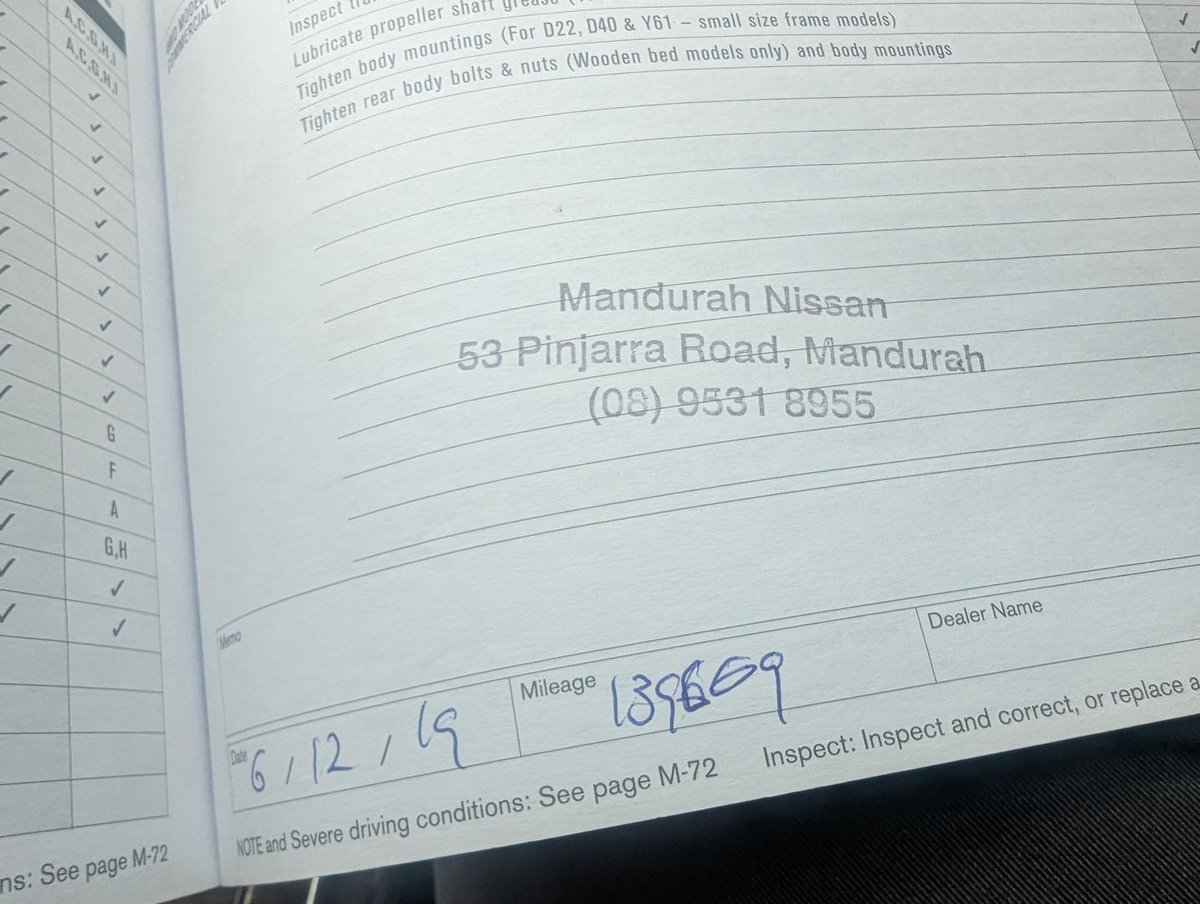 A,C,G,H,I
A,C,G,H,I
G
F
A
G,H
ns: See page M-72
Inspect
Lubricate propeller shaft grease
Tighten body mountings (For D22, D40 & Y61 – small size frame models)
Tighten rear body bolts & nuts (Wooden bed models only) and body mountings
Mandurah Nissan
53 Pinjarra Road, Mandurah
(08) 9531 8955
Memo
Date 6 / 12 / 19
Mileage
Dealer Name
NOTE and Severe driving conditions: See page M-72 Inspect: Inspect and correct, or replace a